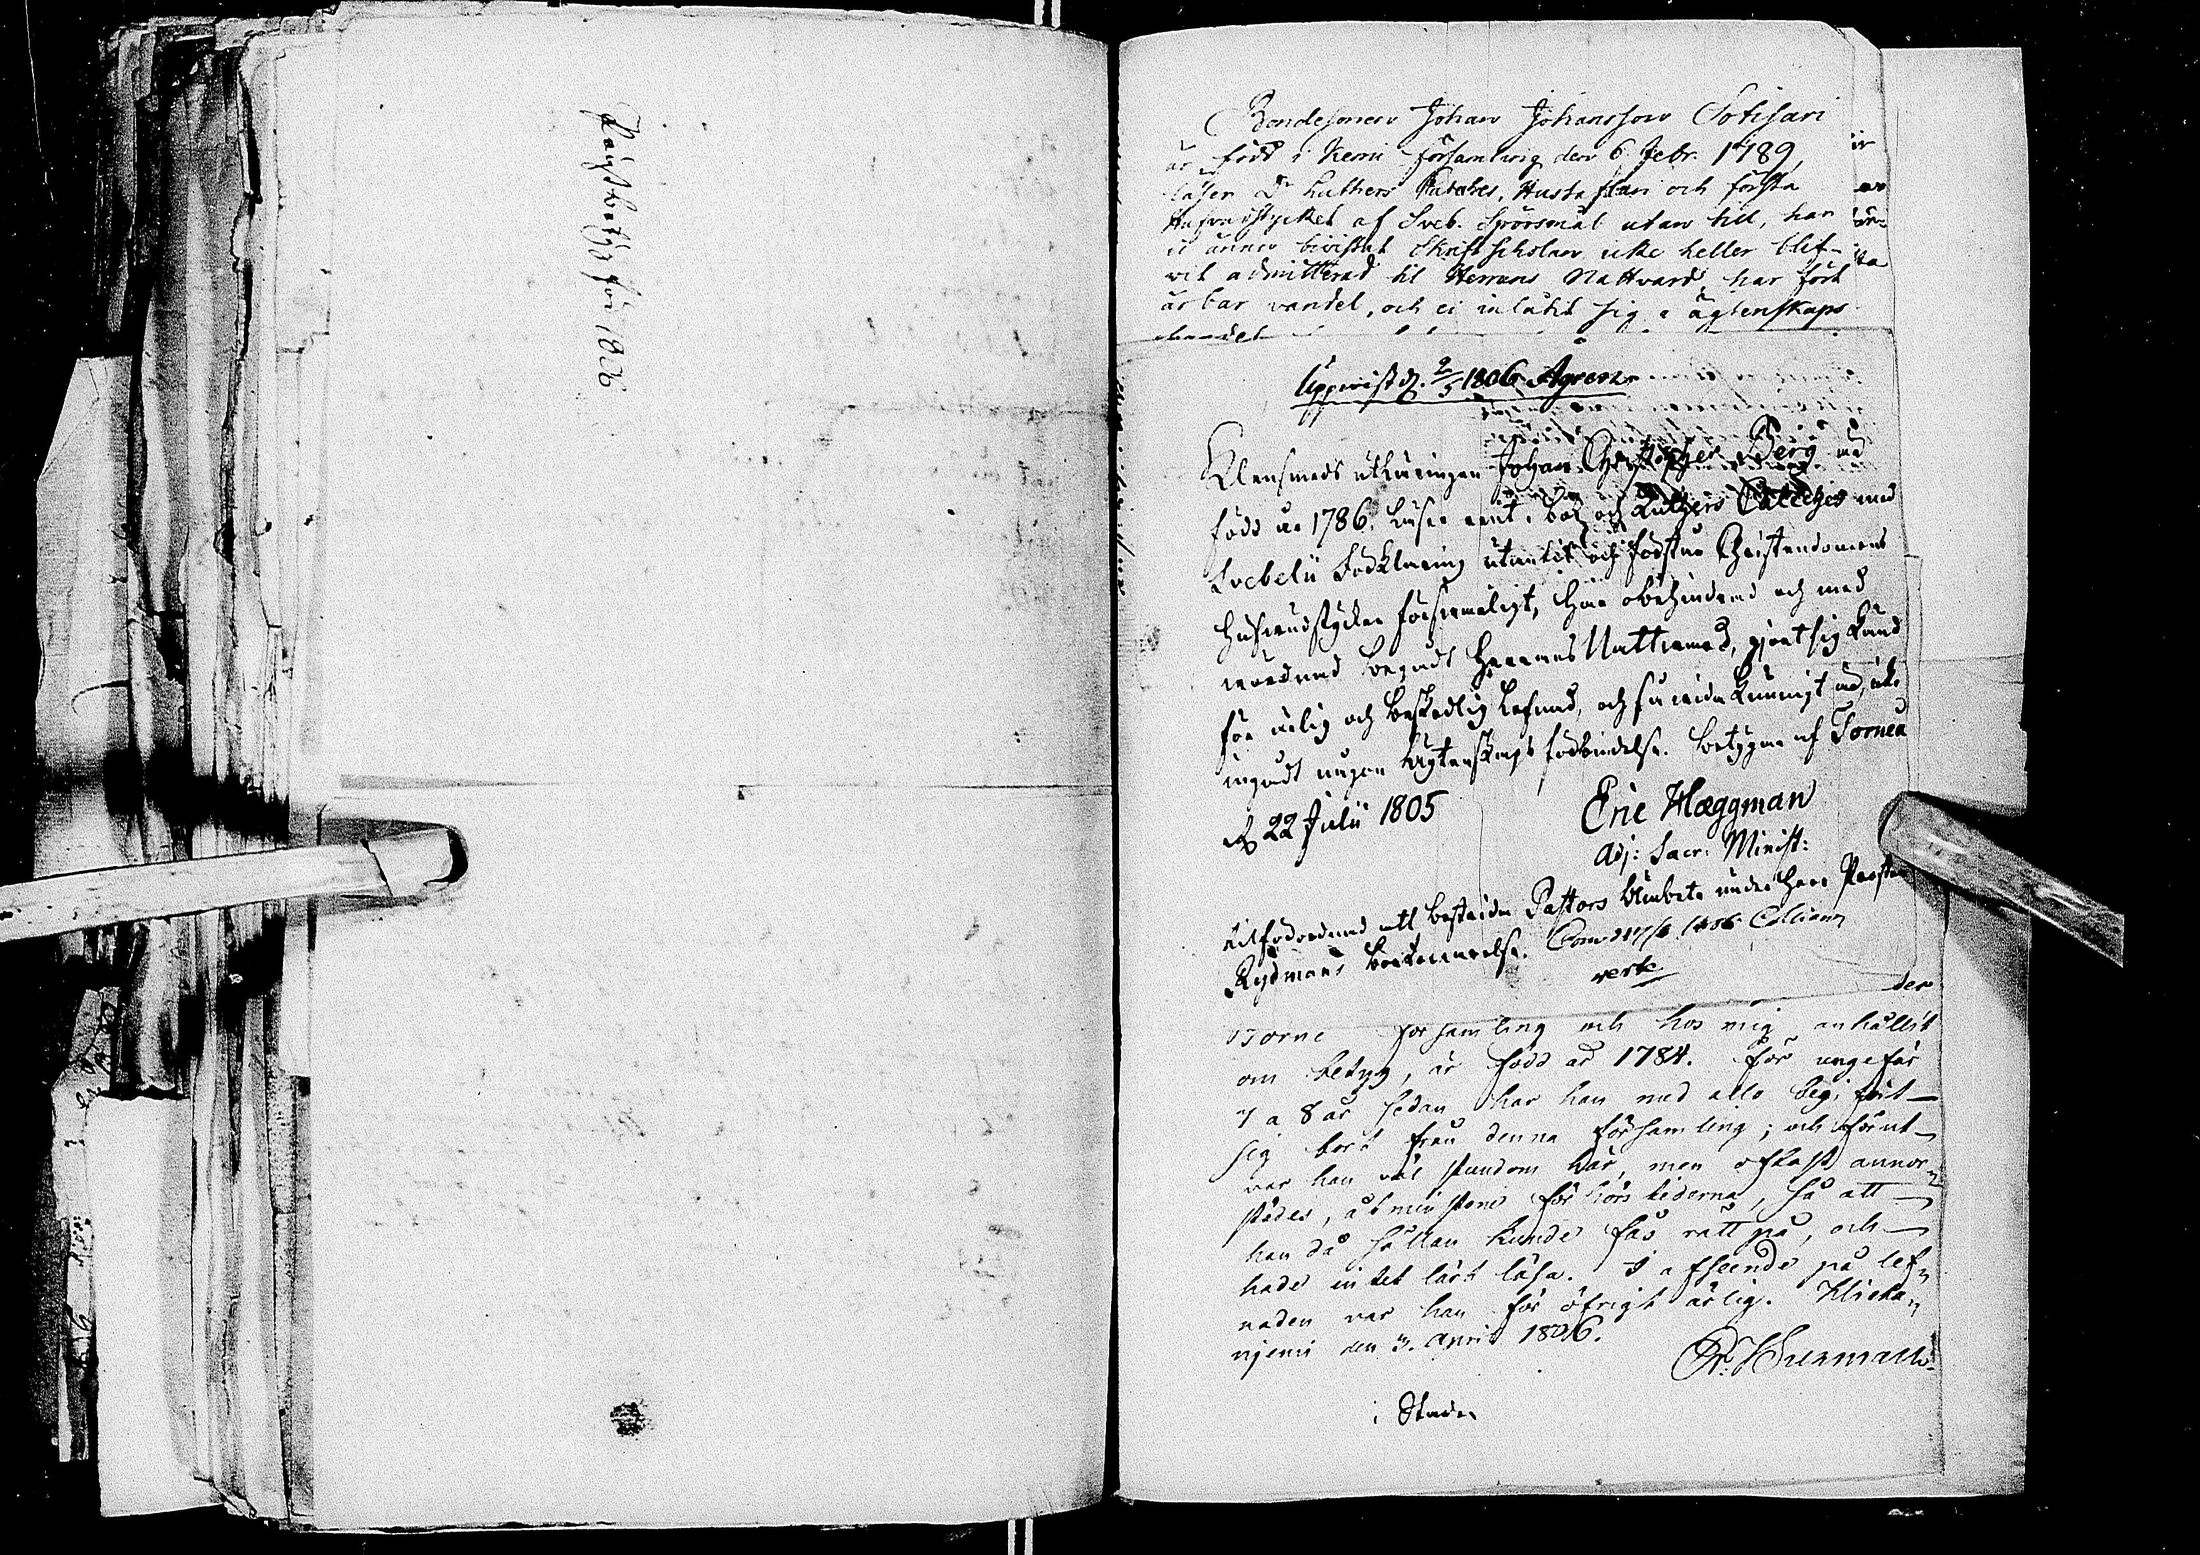 för 1806
Bondesonen Johan Johansson Sotisari
är född i Kemi församling den 6 Febr. 1789,
läser Dr Luthers Catches, Hustaflan och första
Hufvudstycket af Sveb. Spörsmål utan till, har
ei ännu bivistat Skriftscholan icke heller blif-
vit admitterad til Herrans Nattvard, har fört
ärbar vandel, och ei inlåtit sig i ägtenskaps
handel
Uppvist d. 2/5 1806 Agren
Klensmeds Johan Christopher Berg
född år 1786. läser rent i bok och Luthers Cateches med
Svebelii Förklaring utantil och förstår Christendomens
Hufvudstycken försvarligt, har obehindrad och med
vördnad begådt Herrans Nattvard, gjort sig känd
för ärlig och beskedlig lefnad, och så vida kunnigt är, icke
ingådt någon Ägtenskaps förbindelse. betygar af Torneå
d. 22 Julii 1805
Eric Hæggman
Adj: Sacr: Minist:
tilförordnad att bestrida Pastors Ämbete under Herr Prosten
Rydmans bortovarelse.
verte
der
Borne församling och hos mig anhållit
om betyg, är född år 1784. För ungefär
7 a 8 år sedan har han med allo begifvit
sig bort från denna församling; och förut
var han väl stundom här, men oftast annor-
städes, åtminstone förhörstiderna, så att
han då sällan kunde fås rätt på, och
hade intet lärt läsa. I afseende på lef-
naden var han för öfrigt ärlig.
njemi den 3. April 1806.
i Stade